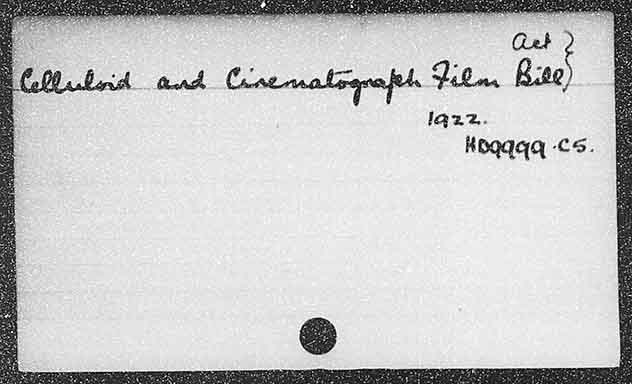 Act }
Celluloid and Cinematograph Film Bill }
1922.
HD9999.C5.